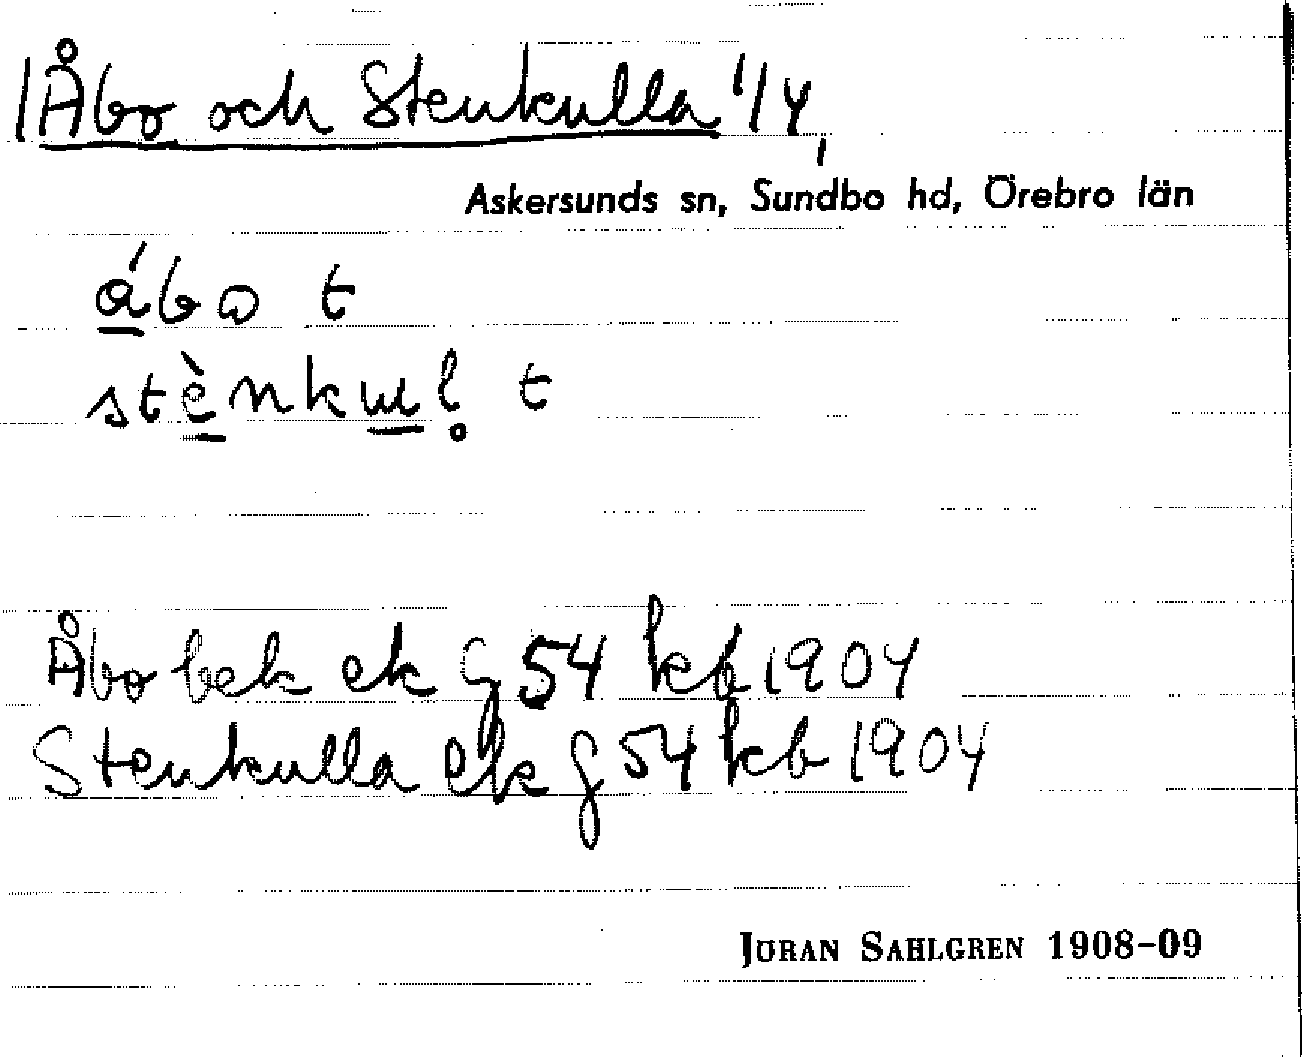 |Åbo och Stenkulla 1/4,
Askersunds sn, Sundbo hd, Örebro län
ábo t
stènkul̥ t
Åbo bek ek g 54 kb 1904
Stenkulla ek g 54 kb 1904
JÖRAN SAHLGREN 1908-09